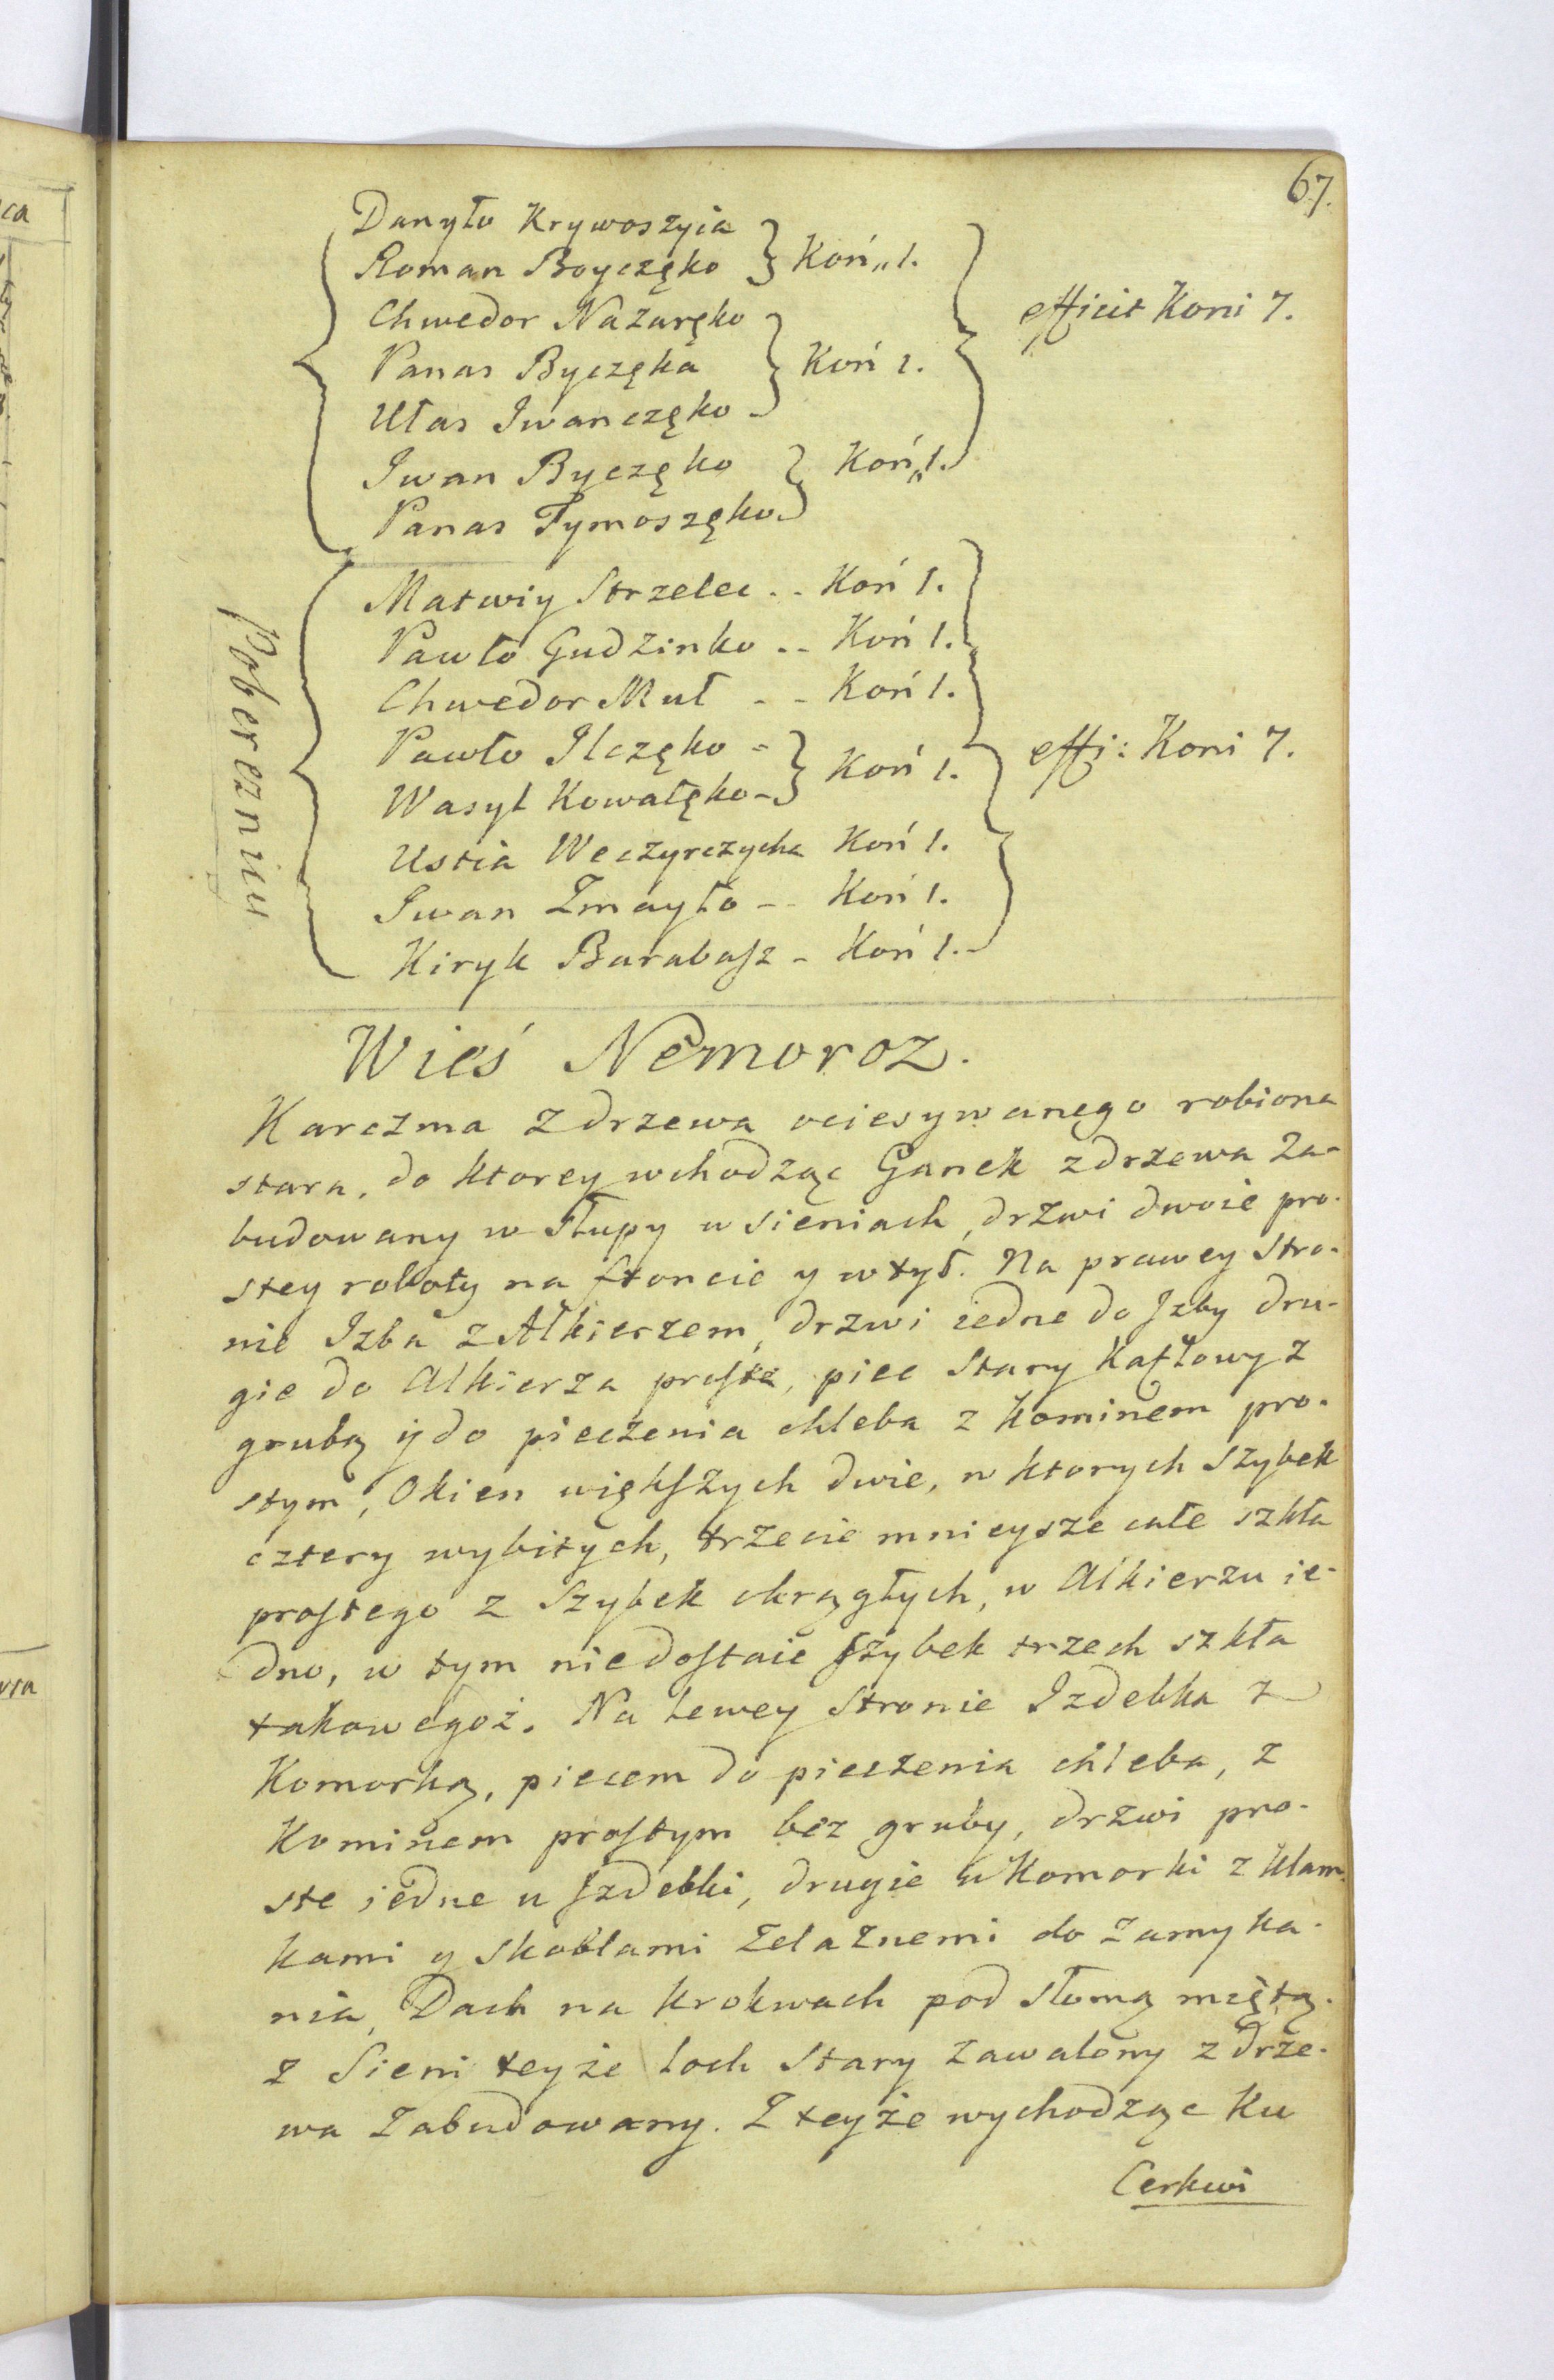 67.
Danyło Krywoszyia
Roman Boyczęko } Koń„ 1.
Chwedor Nazaręko
efficit Koni 7.
Panas Byczęka } Koń 1.
Ułas Iwanczęko
Iwan Byczęko } Koń„ 1.
Panas Tymoszęko
Pobereznicy
Matwiy Strzelec .. Koń 1.
Pawło Gudzinko .. Koń 1.
Chwedor Muł - - Koń 1.
Pawło Ilczęko - } Koń 1.
effi: Koni 7.
Wasyl Kowalęko -
Ustia Weczyrczycha Koń 1.
Iwan Zmayło - - Koń 1.
Kiryk Barabasz - Koń 1.
Wieś Nemoroz.
Karczma z drzewa ociesywanego robiona
stara, do ktorey wchodząc Ganek z drzewa za-
budowany w słupy w sieniach, drzwi dwoie pro-
stey roboty na froncie y w tył. Na prawey stro-
nie Izba z Alkierzem, drzwi iedne do Izby dru-
gie do Alkierza proste, piec stary kaflowy z
grubą y do pieczenia chleba z kominem pro-
stym, Okien większych dwie, w ktorych szybek
cztery wybitych, trzecie mnieysze całe szkła
prostego z szybek okrągłych, w Alkierzu ie-
dno, w tym niedostaie szybek trzech szkła
takowegoż. Na lewey stronie Izdebka z
Komorką, piecem do pieczenia chleba, z
Kominem prostym bez gruby, drzwi pro-
ste iedne u Izdebki, drugie u Komorki z klam-
kami y skoblami żelaznemi do zamyka-
nia, Dach na krokwach pod słomą miętą.
z Sieni teyże loch stary zawalony z drze-
wa zabudowany. Z teyże wychodząc ku
Cerkwi